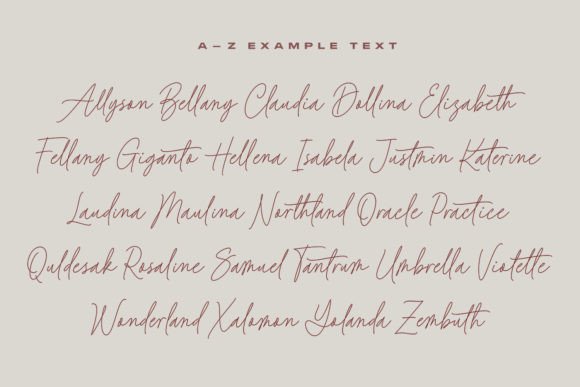 A – Z EXAMPLE TEXT
Allyson Bellany Claudia Dollina Elizabeth
Fellany Giganto Hellena Isabela Justmin Katerine
Laudina Maulina Northland Oracle Practice
Quldesak Rosaline Samuel Tantrum Umbrella Violette
Wonderland Xalomon Yolanda Zembuth